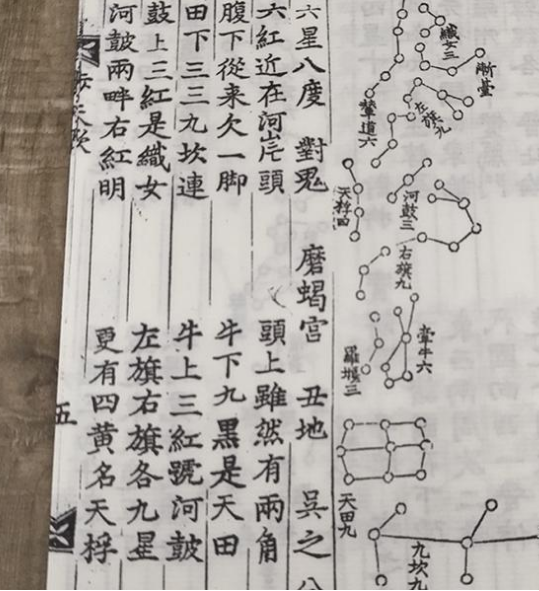 織女三
漸臺
輦道六
左旗九
天桴四
河鼓三
右旗九
牽牛六
羅堰三
天田九
九坎九
六星八度 對兎 磨蝎宮 丑地 吳之
六紅近在河岸頭 頭上雖然有兩角
腹下從来欠一脚 牛下九黒是天田
田下三三九坎連 牛上三紅號河皷
鼓上三紅是織女 左旗右旗各九星
河皷兩畔右紅明 更有四黄名天桴
步天歌
五